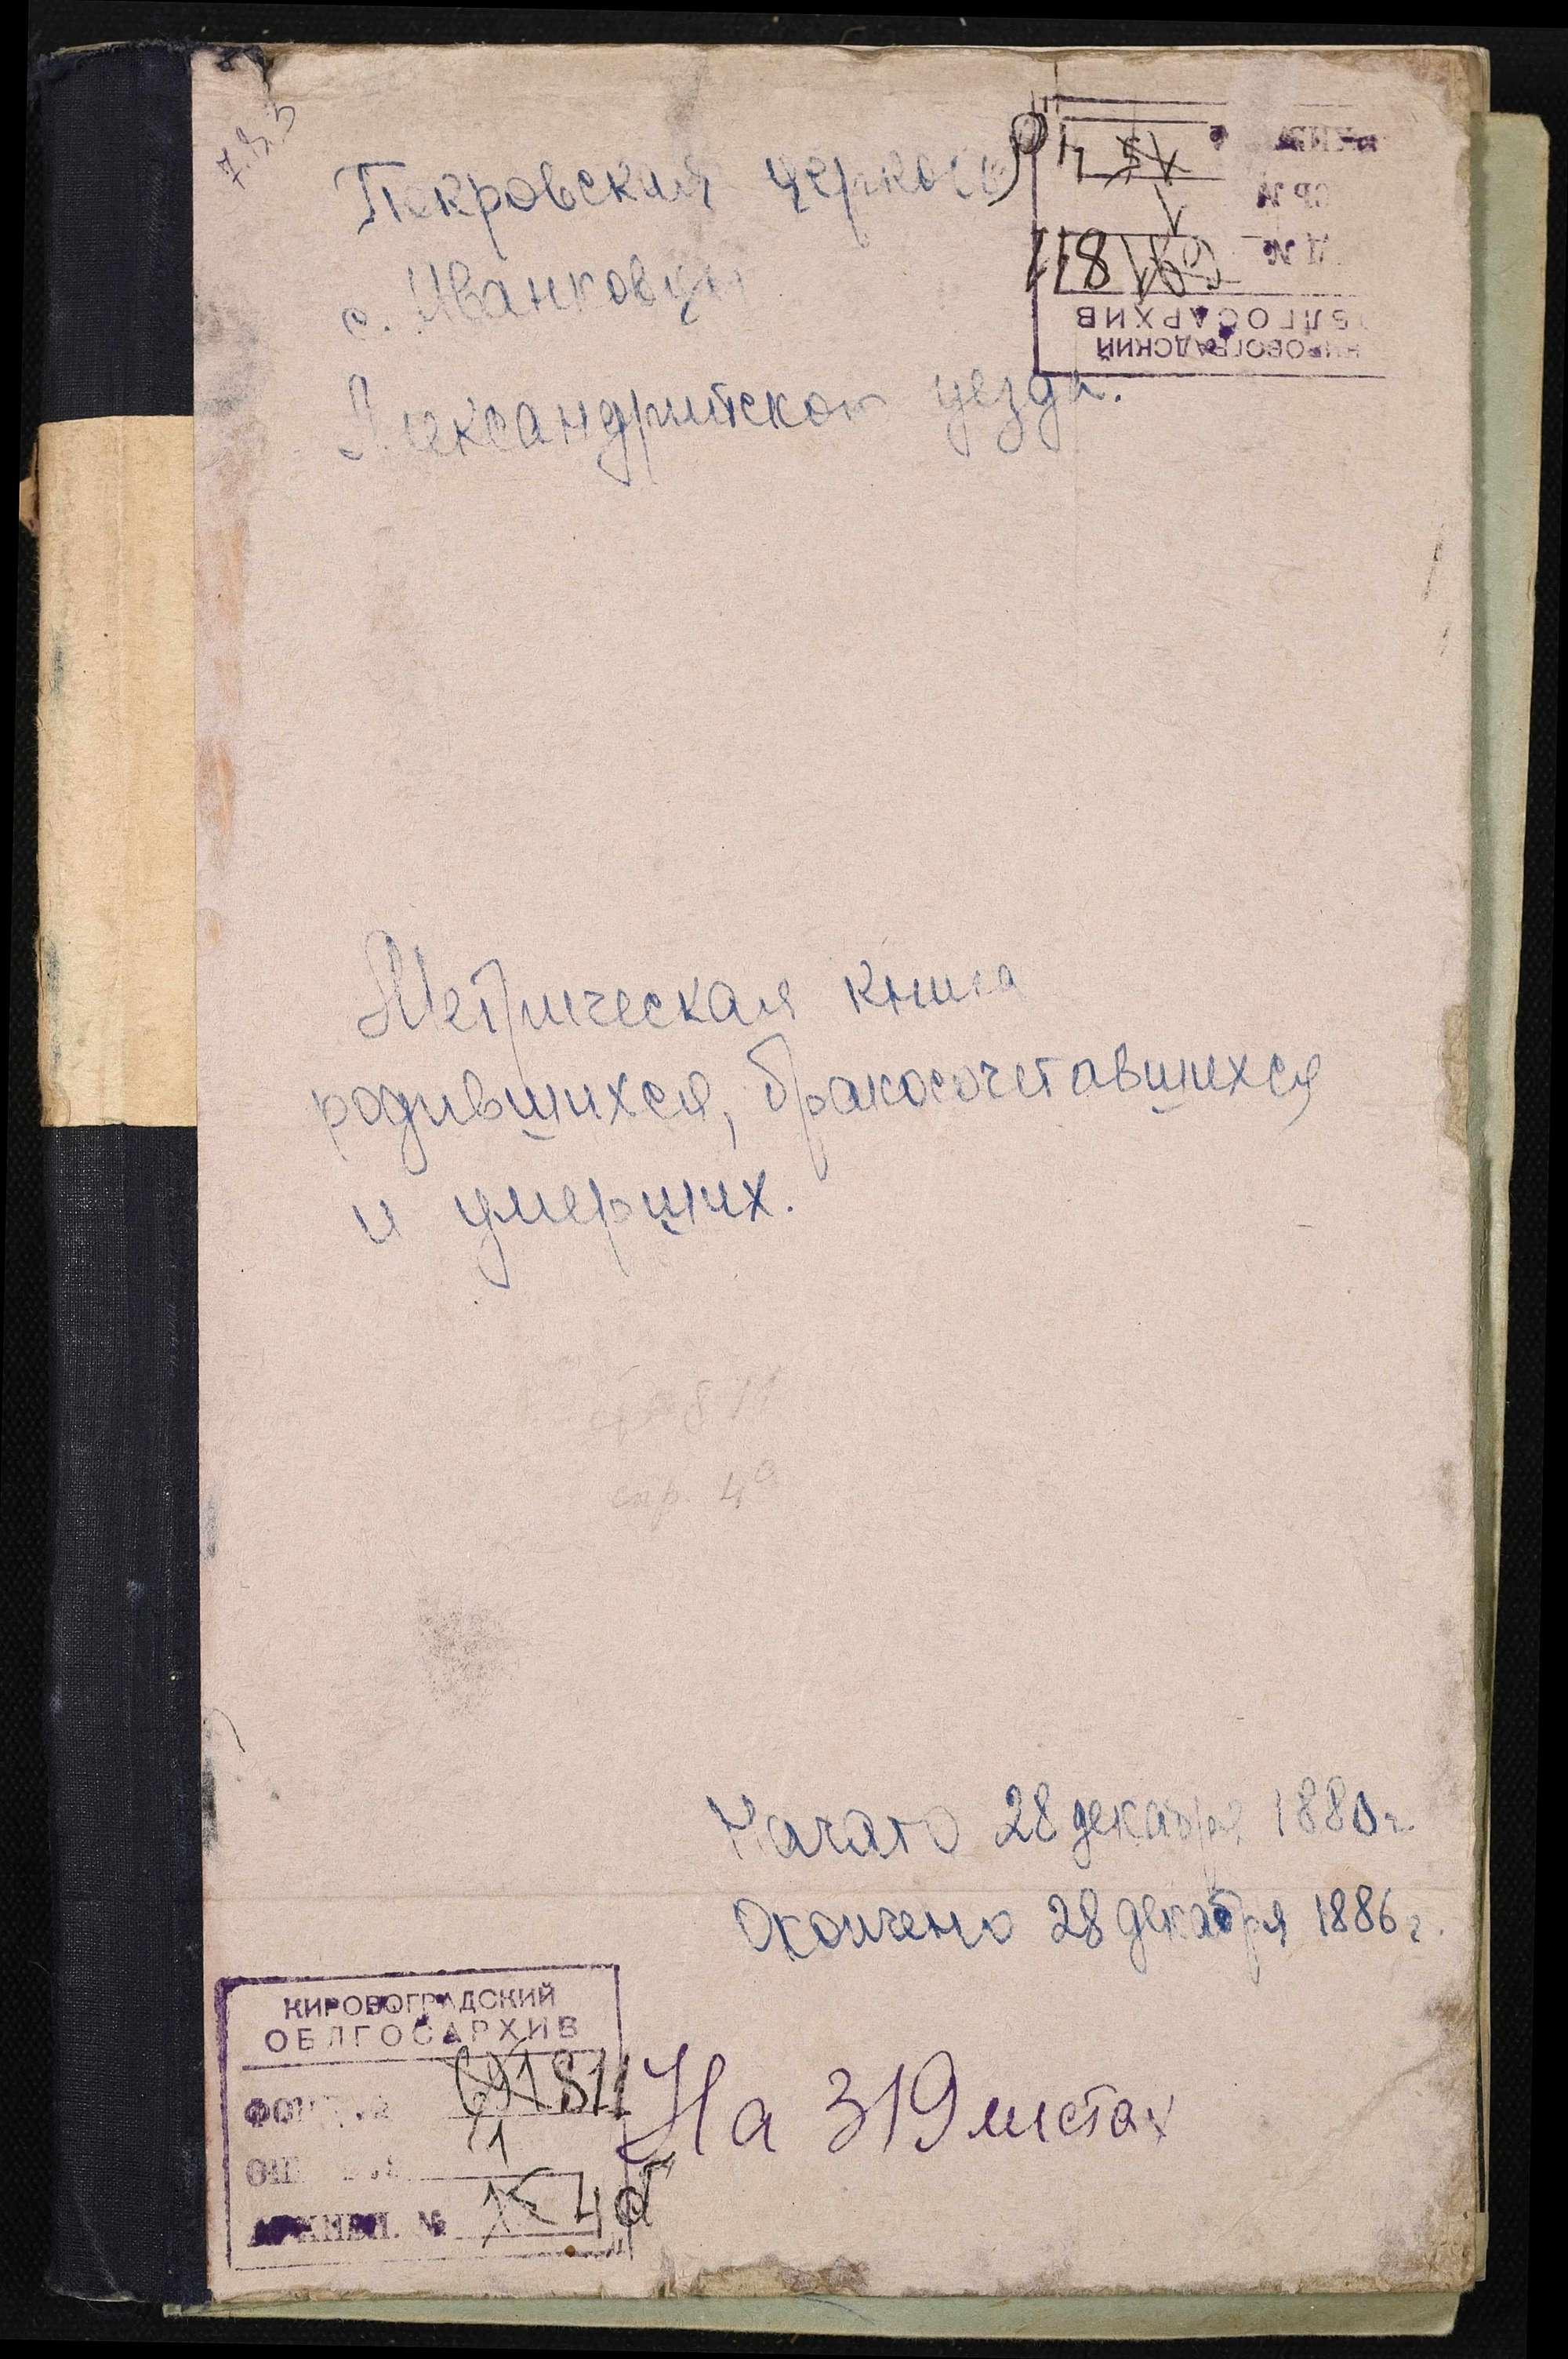 Покровская церковь
с. Иванковцы
Александрийского уезда.
811
КИРОВОГРАДСКИЙ
ОБЛГОСАРХИВ
Метрическая книга
родившихся, бракосочетавшихся
и умерших.
ф 811
спр. 4а
Начато 28 декабря 1880 г.
Окончено 28 декабря 1886 г.
КИРОВОГРАДСКИЙ
ОБЛГОСАРХИВ
ФОНД № 691 811
1
АРХИВН. №
На 319 листах